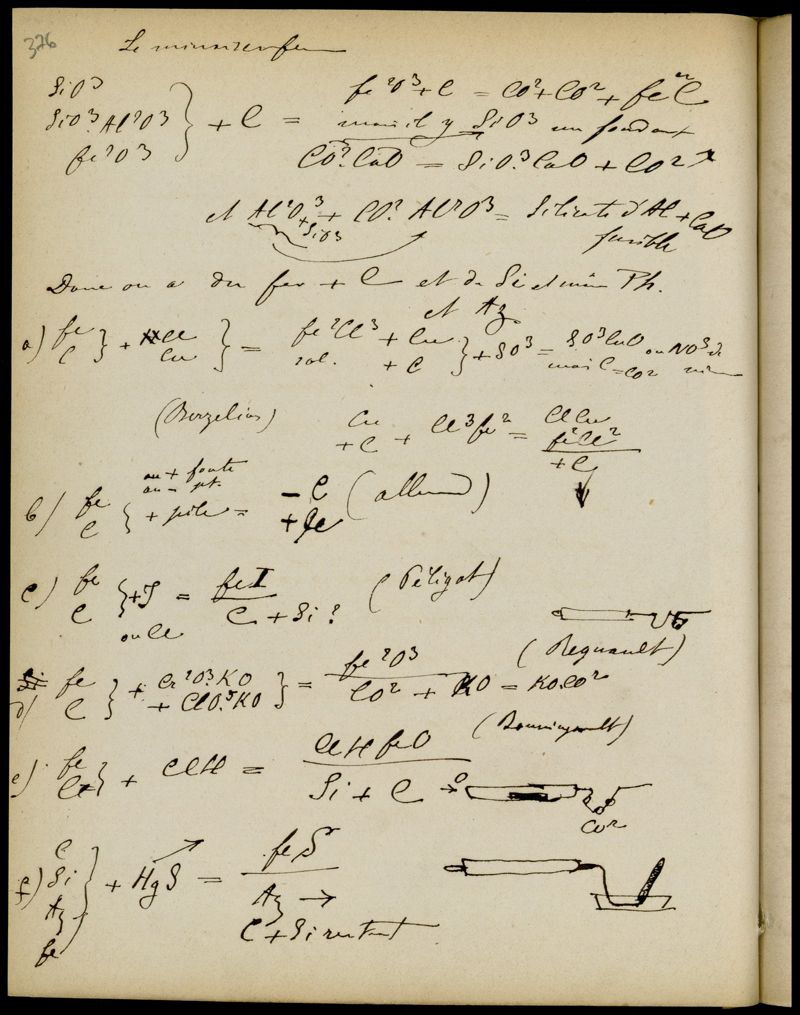 376
Le minerai
SiO3
SiO3.Al2O3 } + C =
fe2O3
fe2O3 + C = CO2 + CO2 + fe n C
mais il y SiO3 un fondant
CO2.CaO = SiO3.CaO + CO2
et Al2O3 + SiO3 + CO2 Al2O3 = Silicate d'Al + CaO
fusible
Donc on a du fer + C et de Si et même Ph.
et Az
a) fe C } + Cl Cu } = fe2Cl3 sol. + Cu + C } + SO3 = SO3CuO ou NO3 de
mais C = CO2
(Berzelius)
Cu + C + Cl3fe2 = ClCu fe2Cl2 + C
b) fe C } + pile = - C + fe
ou + fonte
ou - pt.
c) fe C } + I = feI C + Si ? (Péligot)
ou Cl
(Regnault)
d) fe C } + Cr2O3.KO + ClO5.KO } = fe2O3 CO2 + KO = KO.CO2
(Boussingault)
e) fe C } + ClH = ClH feO Si + C
O
CO2
f) C Si Az fe } + HgS = feS Az →
C + Si restent